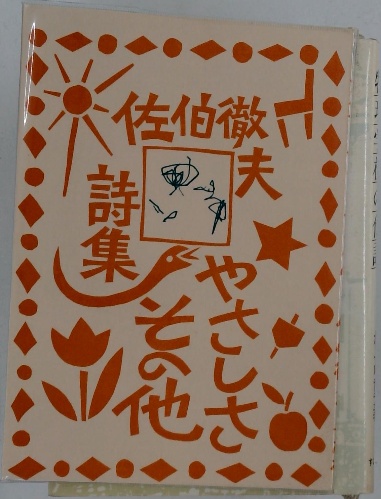 佐伯徹夫
詩集
やさしさ
その他